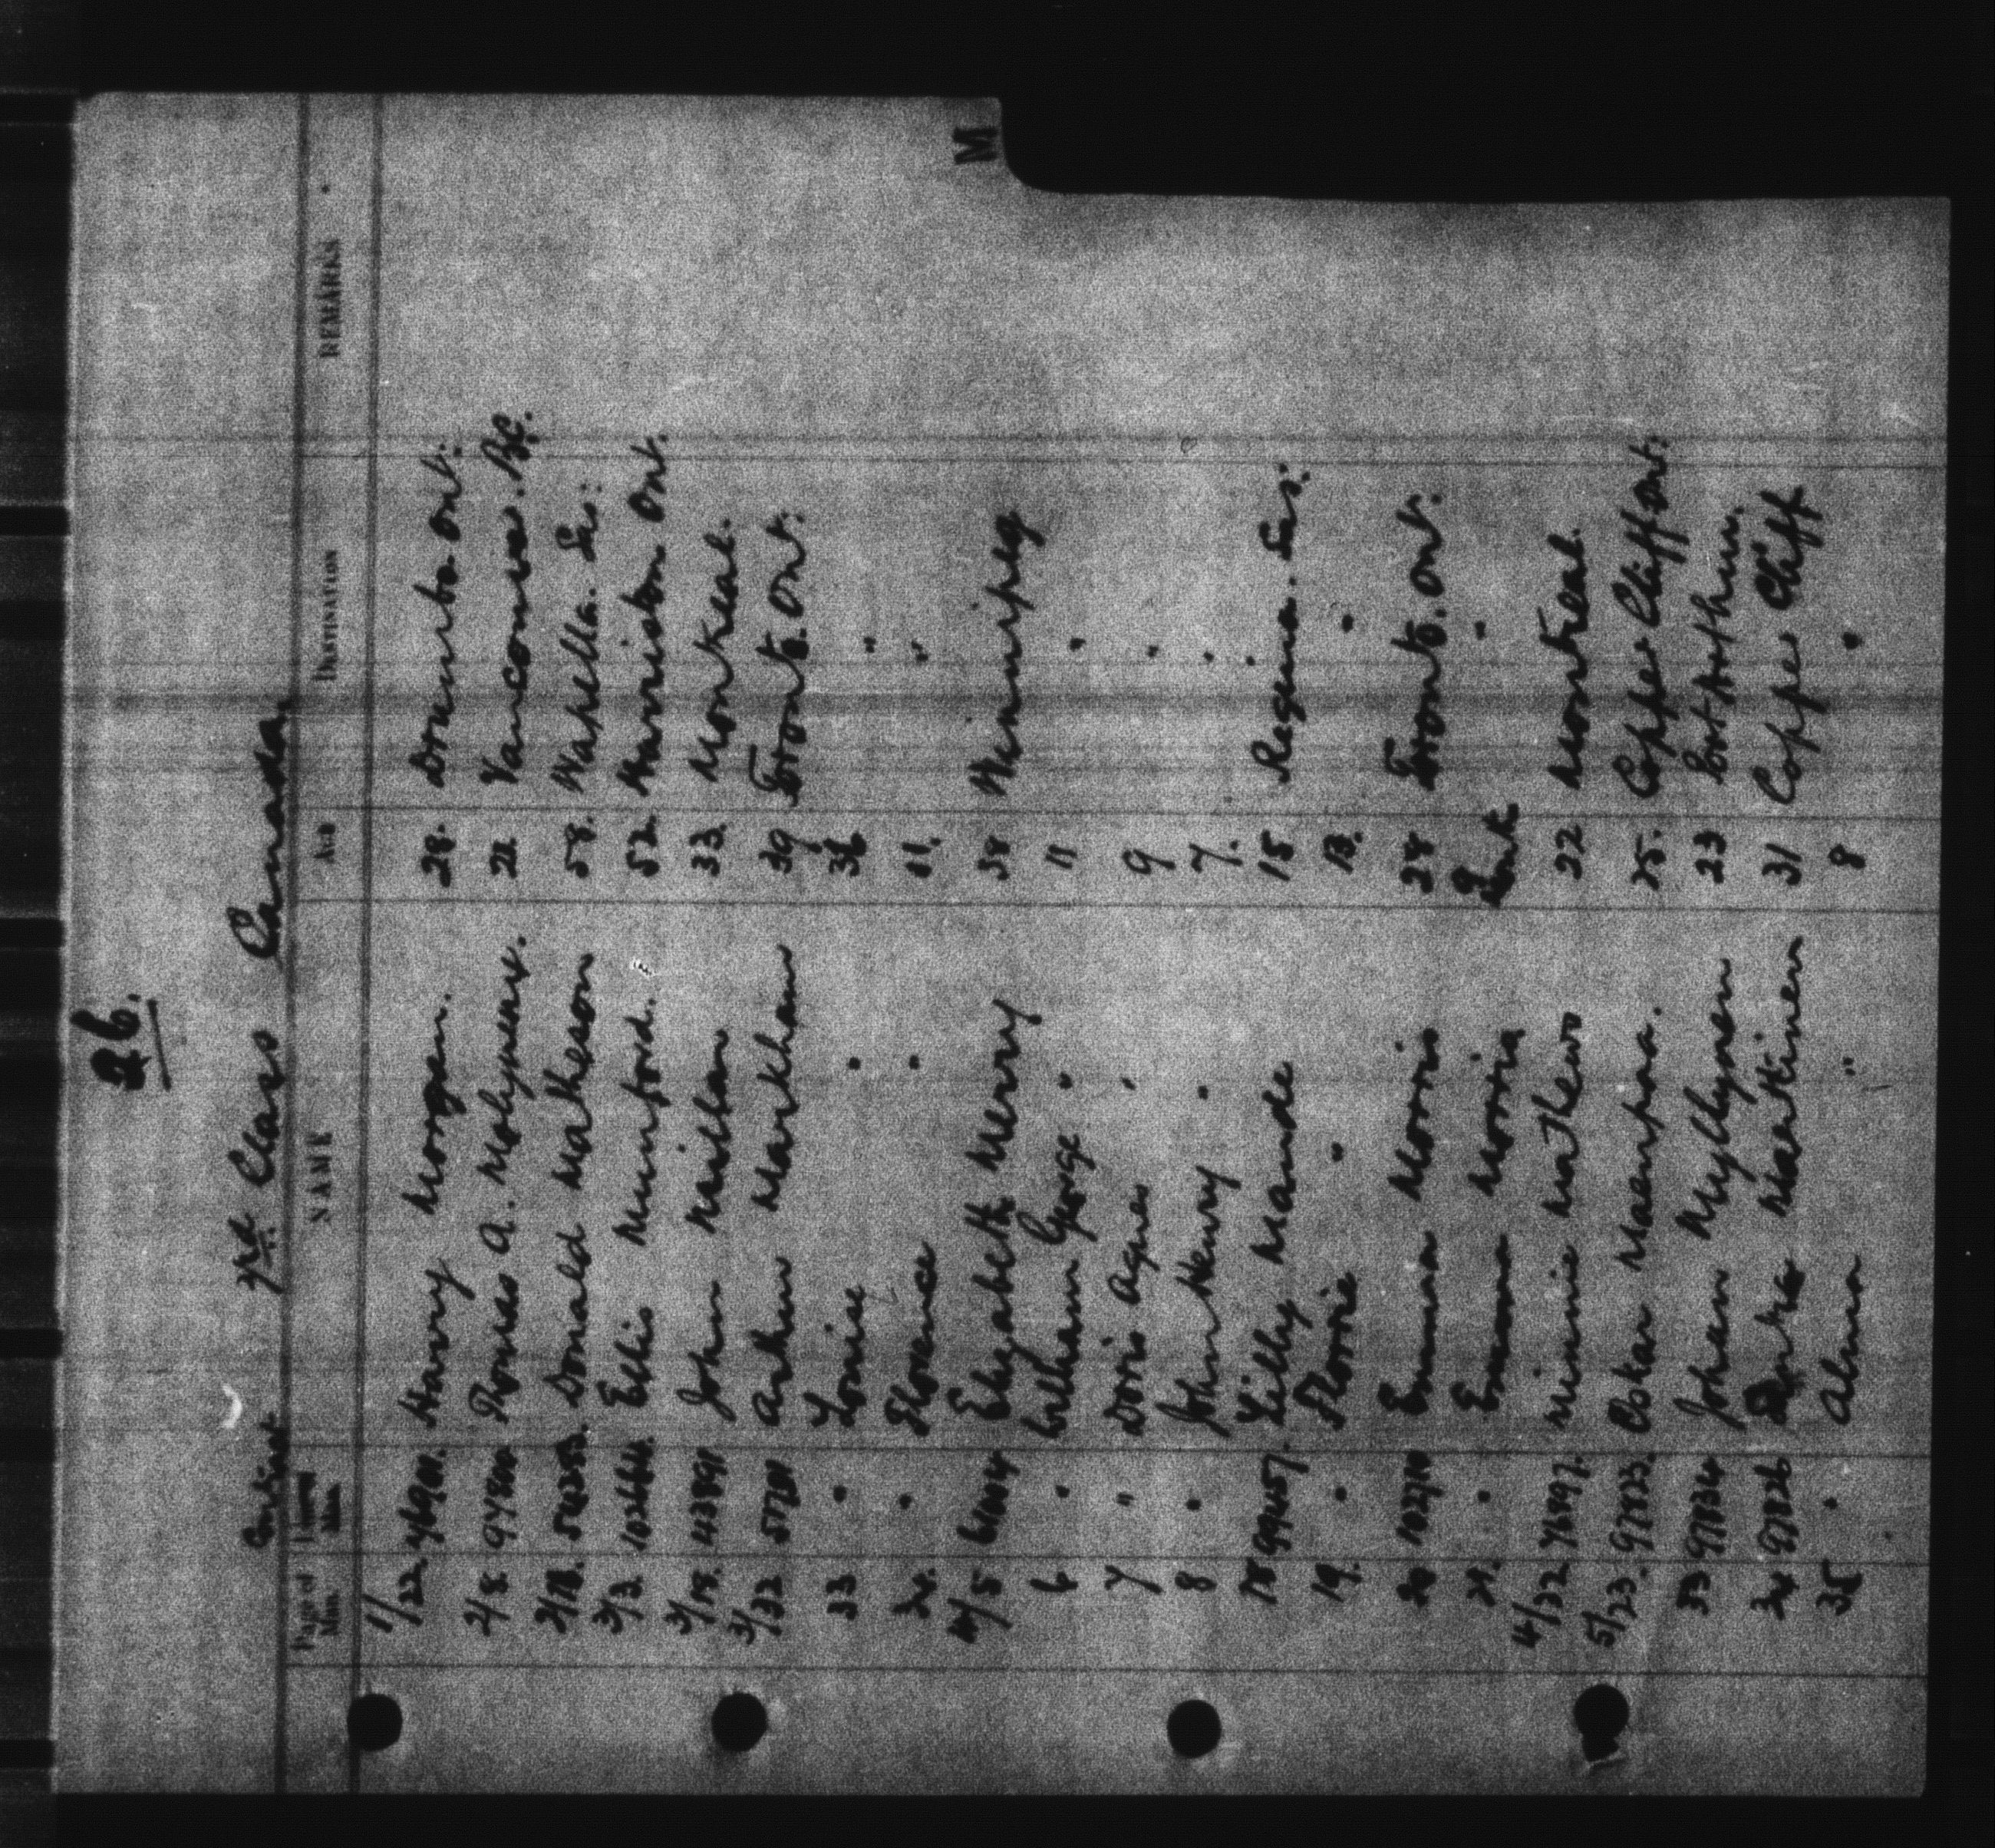 26.
3rd Class Canada.
M
Page of Man. Contract NAME AGE DESTINATION REMARKS
1/22 Harry Morgan. 28. Drumbo. Ont.
2/8 94800 Thomas A. Molyneaux. 22 Vancouver. B.C.
2/18. Donald Matheson 58. Wapella. Sas:
3/3. 102664. Ellis Mumford. 52. Harriston Ont.
3/15. 43891 John Millan 33. Montreal.
3/32 Arthur Markham 39 Toronto. Ont.
33 " Louise " 36 "
34. " Florence " 11. "
4/5 61004 Elizabeth Merry 38 Winnipeg
6 " William George " 11 "
7 " Doris Agnes " 9 "
8 " John Henry " 7. "
18 99457. Lilly Maude 15 Regina. Sas:
19. " Florrie " 13. "
20 102710 Emma Morris 28 Toronto. Ont.
21. " Emma Morris Inft "
4/32 Minnie Mathews 22 Montreal.
5/23. 97823. Oskar Maenpaa. 25. Copper Cliff Ont.
33 97834 Johan Myllynen 23 Port Arthur.
34 97826 Maattinen 31 Copper Cliff
35 " Alma " 8 "